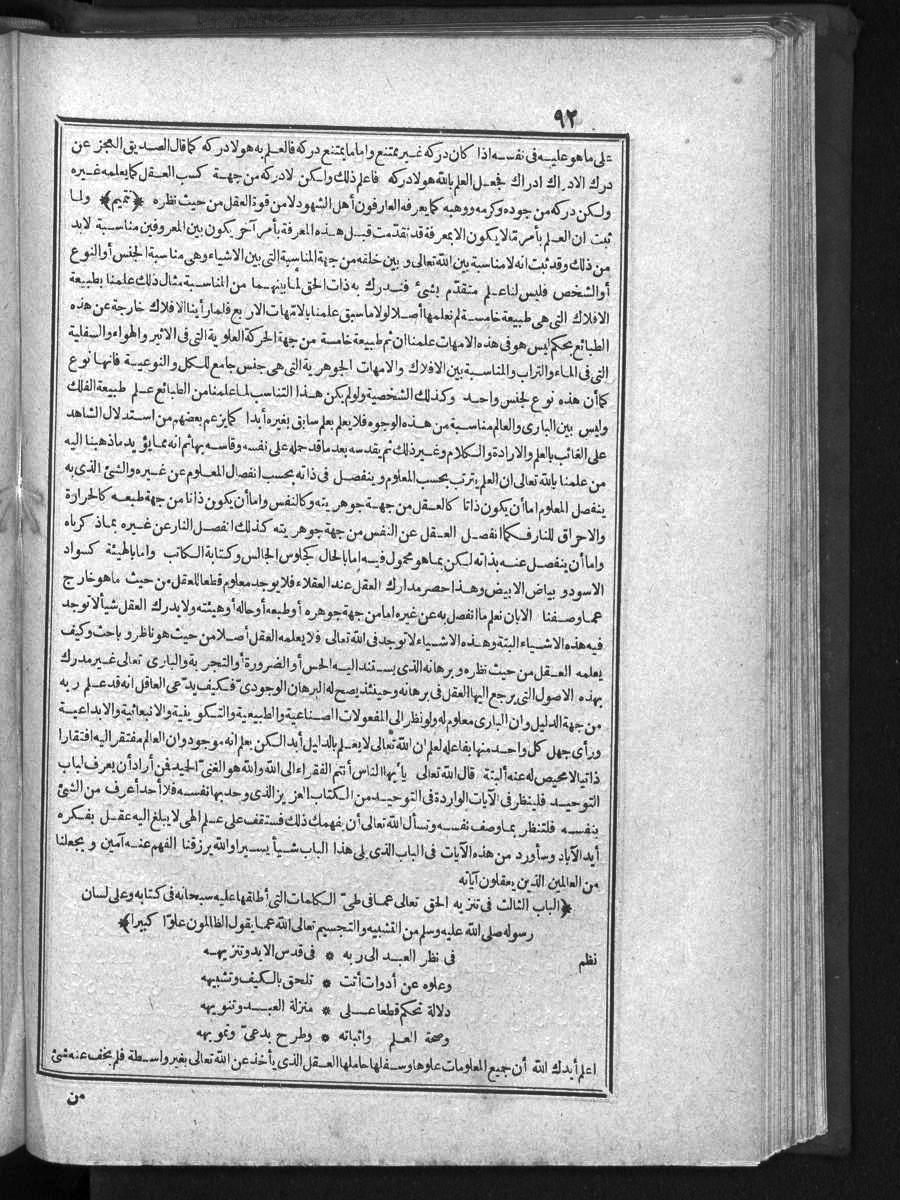 ٩٢
على ما هو عليه فى نفسه اذا كان دركه غير ممتنع واما ما يمتنع دركه فالعلم به هو لا دركه كما قال الصديق العجز عن
درك الادراك ادراك فجعل العلم بالله هو لا دركه فاعلم ذلك ولكن لا دركه من جهة كسب العقل كما يعلمه غيره
ولكن دركه من جوده وكرمه ووهبه كما يعرفه العارفون أهل الشهود لا من قوة العقل من حيث نظره ﴿تتميم﴾ ولما
ثبت ان العلم بأمر ما لا يكون الا بمعرفة قد تقدّمت قبل هذه المعرفة بأمر آخر يكون بين المعروفين مناسبة لابد
من ذلك وقد ثبت انه لا مناسبة بين الله تعالى وبين خلقه من جهة المناسبة التى بين الاشياء وهى مناسبة الجنس أو النوع
أو الشخص فليس لنا علم متقدّم بشئ فندرك به ذات الحق لما بينهما من المناسبة مثال ذلك علمنا بطبيعة
الافلاك التى هى طبيعة خامسة لم نعلمها أصلا لولا ما سبق علمنا بالامّهات الاربع فلما رأينا الافلاك خارجة عن هذه
الطبائع بحكم ليس هو فى هذه الامهات علمنا ان ثم طبيعة خامسة من جهة الحركة العلوية التى فى الاثير والهواء والسفلية
التى فى الماء والتراب والمناسبة بين الافلاك والامهات الجوهرية التى هى جنس جامع للكل والنوعية فانها نوع
كما أن هذه نوع لجنس واحد وكذلك الشخصية ولو لم يكن هذا التناسب لما علمنا من الطبائع علم طبيعة الفلك
وليس بين البارى والعالم مناسبة من هذه الوجوه فلا يعلم بعلم سابق بغيره أبدا كما يزعم بعضهم من استدلال الشاهد
على الغائب بالعلم والارادة والكلام وغير ذلك ثم يقدسه بعد ما قد حمله على نفسه وقاسه بها ثم انه مما يؤيد ما ذهبنا اليه
من علمنا بالله تعالى ان العلم يترتب بحسب المعلوم وينفصل فى ذاته بحسب انفصال المعلوم عن غيره والشئ الذى به
ينفصل المعلوم اما أن يكون ذاتا كالعقل من جهة جوهريته وكالنفس واما أن يكون ذاتا من جهة طبعه كالحرارة
والاحراق للنار فكما انفصل العقل عن النفس من جهة جوهريته كذلك انفصل النار عن غيره بما ذكرناه
واما أن ينفصل عنه بذاته لكن بما هو محمول فيه اما بالحال كجلوس الجالس وكتابة الكاتب واما بالهيئة كسواد
الاسود وبياض الابيض وهذا حصر مدارك العقل عند العقلاء فلا يوجد معلوم قطعا للعقل من حيث ما هو خارج
عما وصفنا الا بان نعلم ما انفصل به عن غيره اما من جهة جوهره أو طبعه أو حاله أو هيئته ولا يدرك العقل شيأ لا توجد
فيه هذه الاشياء البتة وهذه الاشياء لا توجد فى الله تعالى فلا يعلمه العقل أصلا من حيث هو ناظر وباحث وكيف
يعلمه العقل من حيث نظره وبرهانه الذى يستند اليه الحس أو الضرورة أو التجربة والبارى تعالى غير مدرك
بهذه الاصول التى يرجع اليها العقل فى برهانه وحينئذ يصح له البرهان الوجودىّ فكيف يدّعى العاقل انه قد علم ربه
من جهة الدليل وان البارى معلوم له ولو نظر الى المفعولات الصناعية والطبيعية والتكوينية والانبعاثية والابداعية
ورأى جهل كل واحد منها بفاعله لعلم ان الله تعالى لا يعلم بالدليل أبدا لكن يعلم انه موجود وان العالم مفتقر اليه افتقارا
ذاتيا لا محيص له عنه ألبتة قال الله تعالى يا أيها الناس أنتم الفقراء الى الله والله هو الغنىّ الحميد فمن أراد أن يعرف لباب
التوحيد فلينظر فى الآيات الواردة فى التوحيد من الكتاب العزيز الذى وحد بها نفسه فلا أحد أعرف من الشئ
بنفسه فلتنظر بما وصف نفسه وتسأل الله تعالى أن يفهمك ذلك فستقف على علم الهى لا يبلغ اليه عقل بفكره
أبد الآباد وسأورد من هذه الآيات فى الباب الذى يلى هذا الباب شيأ يسيرا والله يرزقنا الفهم عنه آمين ويجعلنا
من العالمين الذين يعقلون آياته
﴿الباب الثالث فى تنزيه الحق تعالى عما فى طىّ الكلمات التى أطلقها عليه سبحانه فى كتابه وعلى لسان
رسوله صلى الله عليه وسلم من التشبيه والتجسيم تعالى الله عما يقول الظالمون علوّا كبيرا﴾
نظم فى نظر العبد الى ربه * فى قدس الايد وتنزيهه
وعلوه عن أدوات أتت * تلحق بالكيف وتشبيهه
دلالة تحكم قطعا على * منزلة العبد وتنويهه
وصحة العلم واثباته * وطرح بدعىّ وتمويهه
اعلم أيدك الله أن جميع المعلومات علوها وسفلها حاملها العقل الذى يأخذ عن الله تعالى بغير واسطة فلم يخف عنه شئ
من